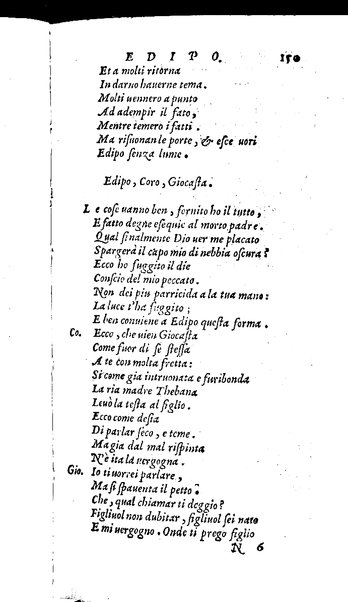 EDIPO. 150
Et a molti ritorna
In darno hauerne tema.
Molti uennero a punto
Ad adempir il fato,
Mentre temero i fatti.
Ma risuonan le porte, & esce uori
Edipo senza lume.
Edipo, Coro, Giocasta.
L e cose uanno ben, fornito ho il tutto,
E fatto degne esequie al morto padre.
Qual finalmente Dio uer me placato
Spargerà il capo mio di nebbia oscura?
Ecco ho fuggito il die
Conscio del mio peccato.
Non dei piu parricida a la tua mano:
La luce t'ha fuggito;
E ben conuiene a Edipo questa forma.
Co. Ecco, che uien Giocasta
Come fuor di se stessa
A te con molta fretta:
Si come gia intruonata e furibonda
La ria madre Thebana
Leuò la testa al figlio.
Ecco come desia
Di parlar seco, e teme.
Ma gia dal mal rispinta
N'è ita la uergogna.
Gio. Io ti uorrei parlare,
Ma si spauenta il petto?
Che, qual chiamar ti deggio?
Figliuol non dubitar, figliuol sei nato
E mi uergogno. Onde ti prego figlio
N 6